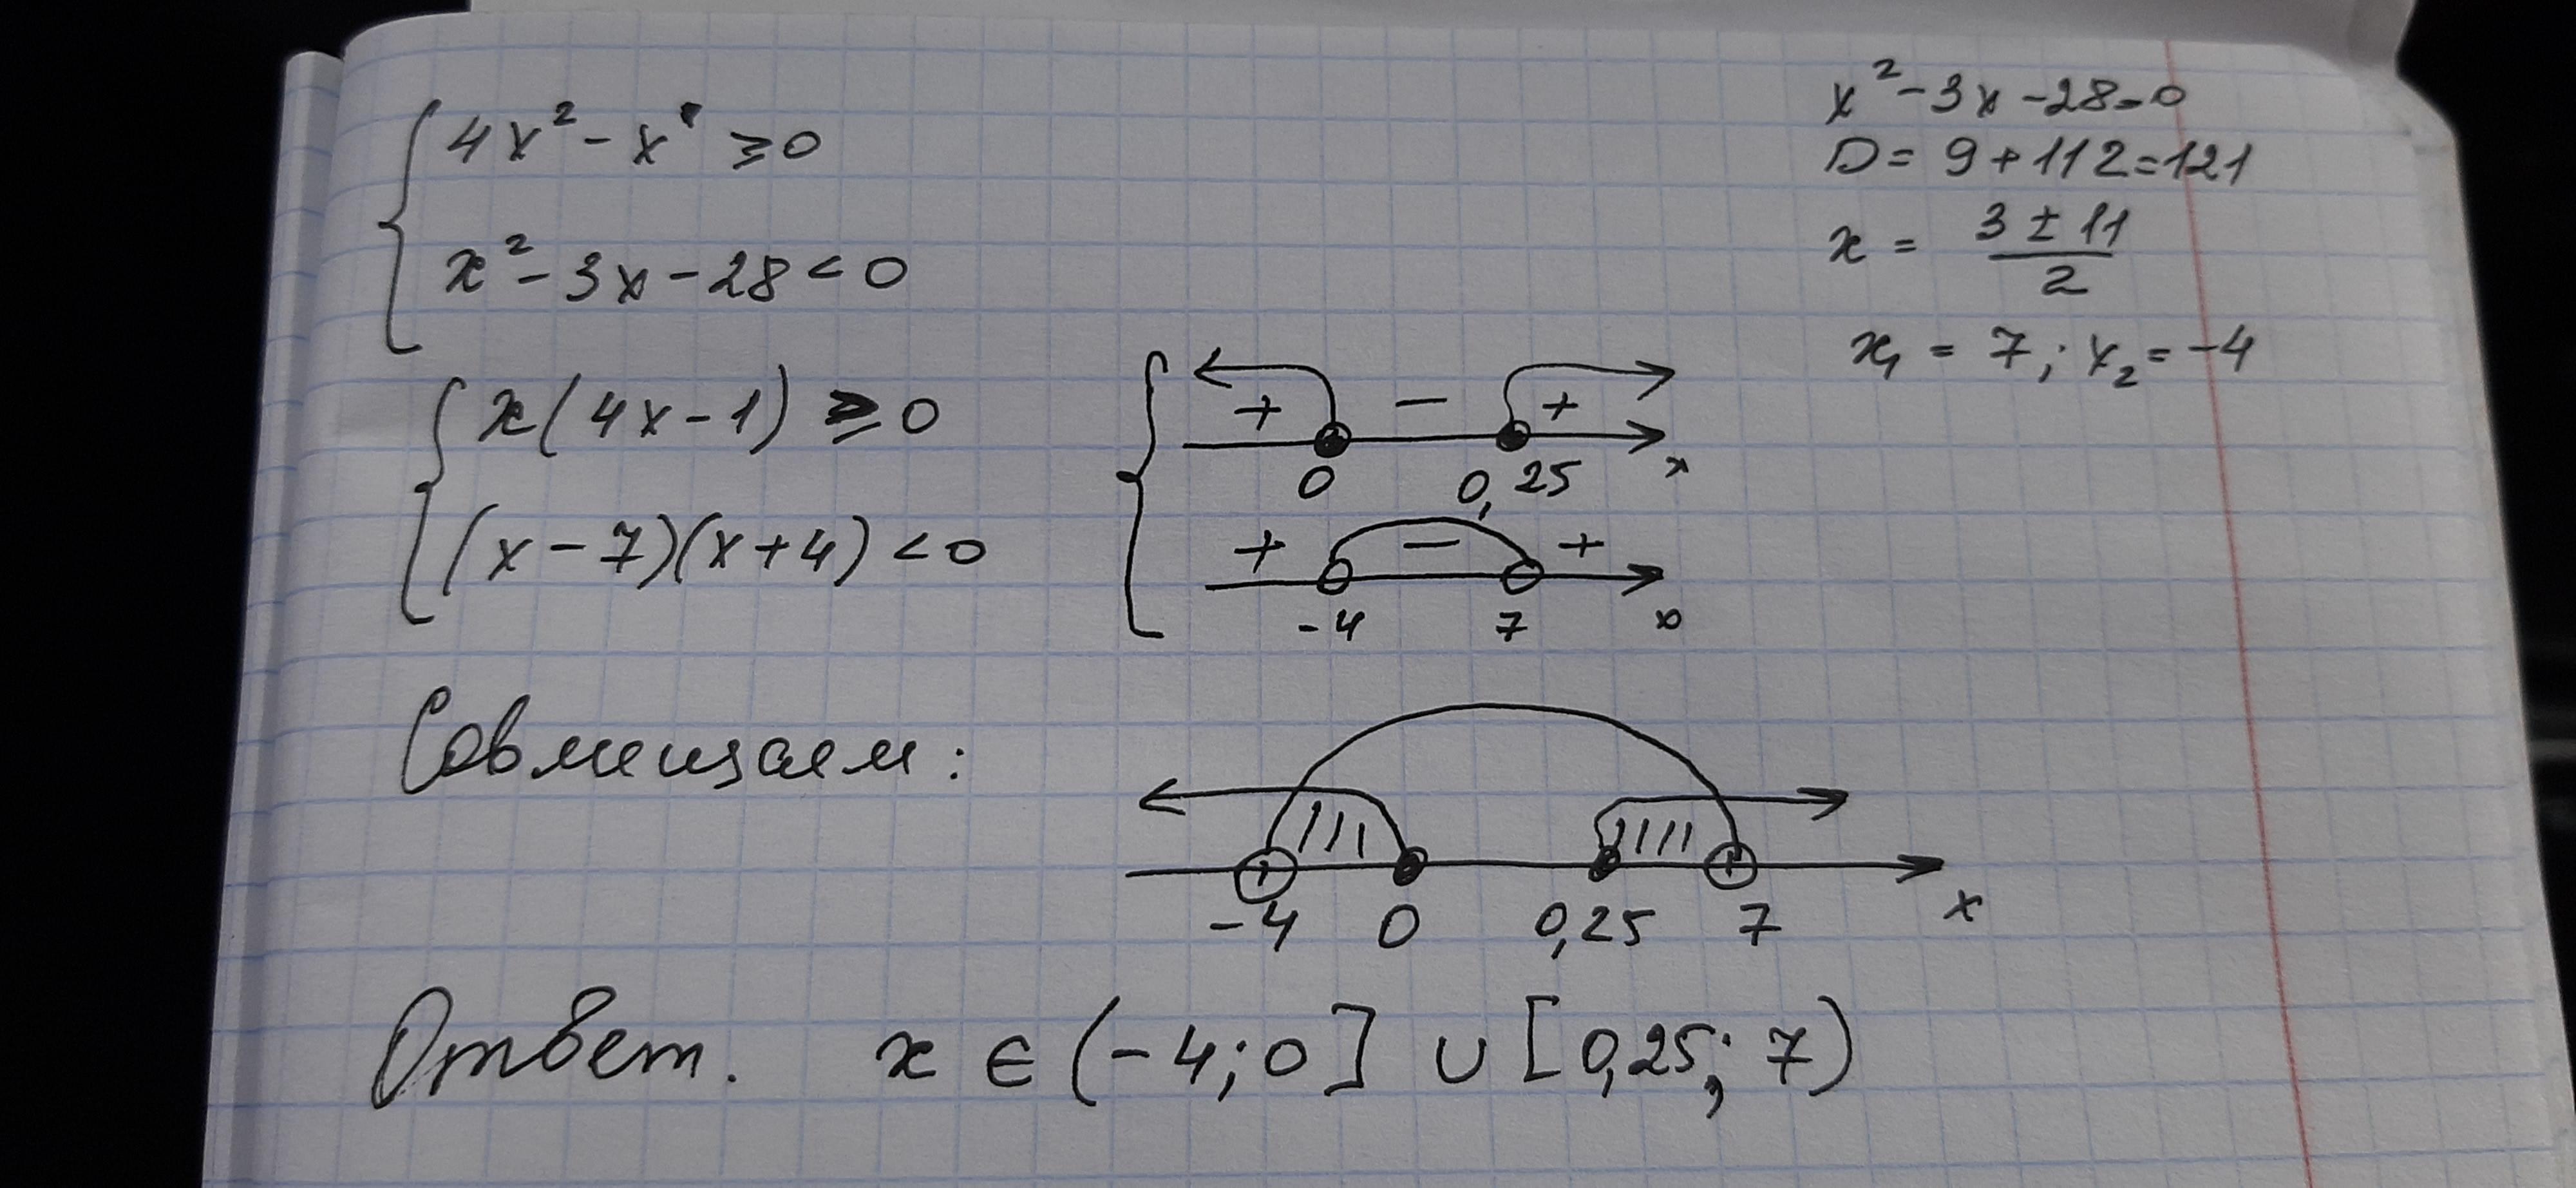 4x² - x ≥ 0
x² - 3x - 28 < 0
x² - 3x - 28 = 0
D = 9 + 112 = 121
x = (3 ± 11)/2
x₁ = 7; x₂ = -4
x(4x - 1) ≥ 0
(x - 7)(x + 4) < 0
+ - +
0 0,25 x
+ - +
-4 7 x
Совмещаем:
-4 0 0,25 7 x
Ответ. x ∈ (-4; 0] ∪ [0,25; 7)